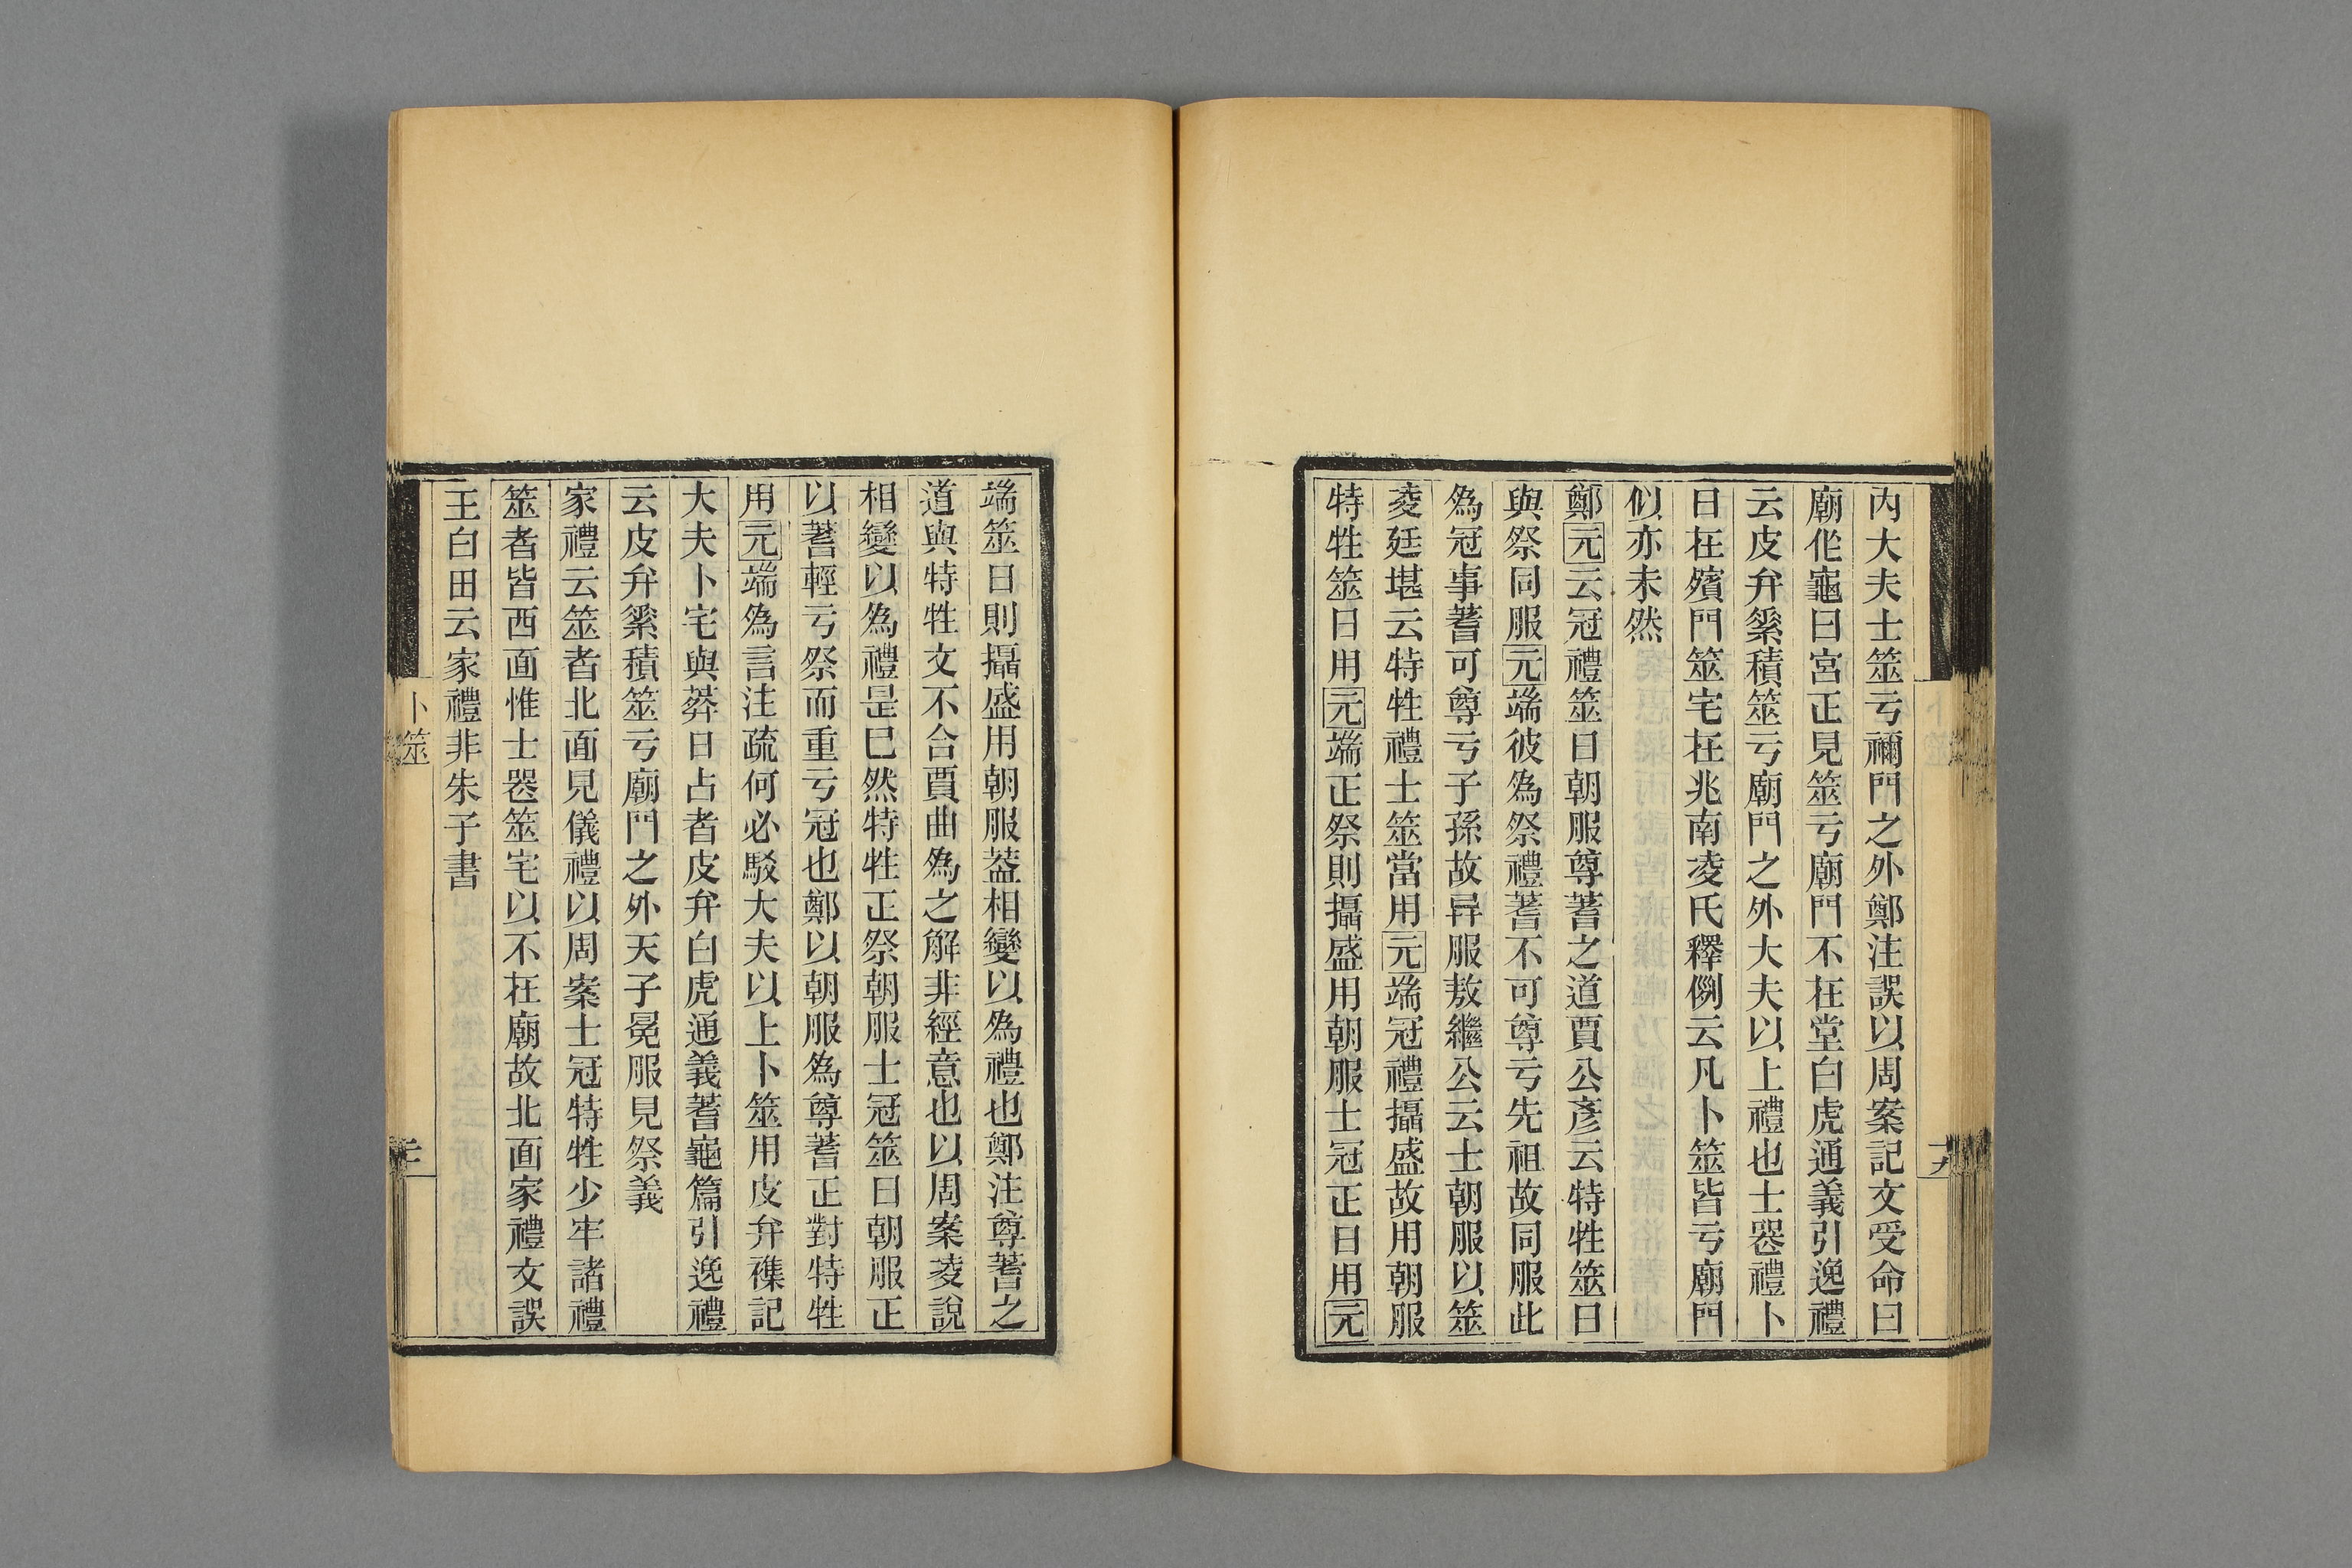 內大夫士筮亏禰門之外鄭注誤以周案記文受命曰
廟㑅龜曰宮正見筮亏廟門不在堂白虎通義引逸禮
云皮弁䋣積筮亏廟門之外大夫以上禮也士喪禮卜
日在殯門筮宅在兆南凌氏釋例云凡卜筮皆亏廟門
佀亦未然
鄭元云冠禮筮日朝服尊蓍之道賈公彥云特牲筮日
與祭同服元端彼為祭禮蓍不可尊亏先祖故同服此
為冠事蓍可尊亏子孫故异服敖繼公云士朝服以筮
凌廷堪云特牲禮士筮當用元端冠禮攝盛故用朝服
特牲筮日用元端正祭則攝盛用朝服士冠正日用元
端筮日則攝盛用朝服葢相變以為禮也鄭注尊蓍之
道與特牲文不合賈曲為之解非經意也以周案凌說
相變以為禮是巳然特牲正祭朝服士冠筮日朝服正
以蓍輕亏祭而重亏冠也鄭以朝服為尊蓍正對特牲
用元端為言注疏何必駁大夫以上卜筮用皮弁襍記
大夫卜宅與葬日占者皮弁白虎通義蓍龜篇引逸禮
云皮弁䋣積筮亏廟門之外天子冕服見祭義
家禮云筮者北面見儀禮以周案士冠特牲少牢諸禮
筮者皆西面惟士喪筮宅以不在廟故北面家禮文誤
王白田云家禮非朱子書
卜筮